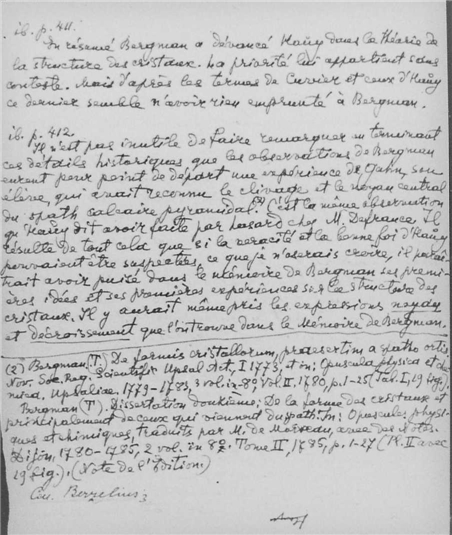 ib. p. 411.
En résumé Bergman a dévancé Haüy dans la théorie de
la structure des cristaux. La priorité lui appartient sans
conteste. Mais d'après les termes de Cuvier et ceux d'Haüy
ce dernier semble n'avoir rien emprunté à Bergman.
ib. p. 412
Il n'est pas inutile de faire remarquer en terminant
ces détails historiques que les observations de Bergman
eurent pour point de départ une expérience de Gahn, son
élève, qui avait reconnu le clivage et le noyau central
du spath calcaire pyramidal. C'est la même observation
qu'Haüy dit avoir faite par hasard chez M. Defrance. Il
résulte de tout cela que si la veracité et la bonne foi d'Haüy
pouvaient être suspectées, ce que je n'oserais croire, il paraî-
trait avoir puisé dans le mémoire de Bergman ses premi-
ères idées et ses premières expériences sur la structure des
cristaux. Il y aurait même pris les expressions noyau
et décroissement que l'on trouve dans le Mémoire de Bergman.
(2) Bergman (T.) De formis cristallorum, praesertim a spatho ortis
Nov. Soc. Reg. Scientific Upsal Act, I 1773, et in: Opuscula physica et che-
mica, Upsaliae, 1779-1783, 3 vol. in-8º Vol II, 1780, p. 1-25 (Tab. I, 19 fig.).
Bergman (T.). Dissertation douxième: De la forme des cristaux et
principalement de ceux qui viennent du spath. In: Opuscules physi-
ques et chimiques, traduits par M. de Morveau, avec des notes.
Dijon, 1780-1785, 2 vol. in 8º. Tome II, 1785, p. 1-27 (Pl. II avec
19 fig.). (Note de l'Edition.)
Berzelius